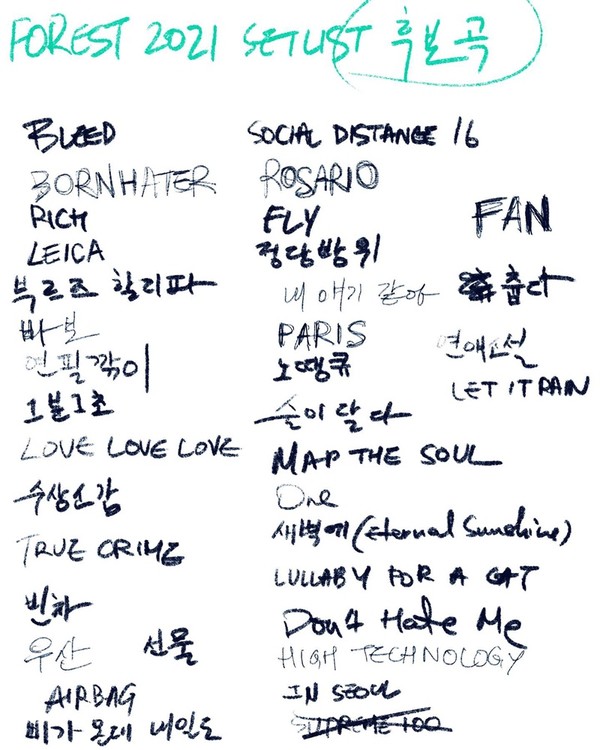 FOREST 2021 SETLIST 후보곡
BLEED
BORNHATER
RICH
LEICA
부르즈 할리파
빠보
연필깎이
1분1초
LOVE LOVE LOVE
수상소감
TRUE CRIME
빈차
우산 선물
AIRBAG
비가 온대 내일도
SOCIAL DISTANCE 16
ROSARIO
FLY
정당방위
내 얘기 같아
PARIS
노땡큐
술이 달다
MAP THE SOUL
One
새벽에 (Eternal Sunshine)
LULLABY FOR A CAT
Don't Hate Me
HIGH TECHNOLOGY
IN SEOUL
SUPREME 100
FAN
춥다
연애소설
LET IT RAIN